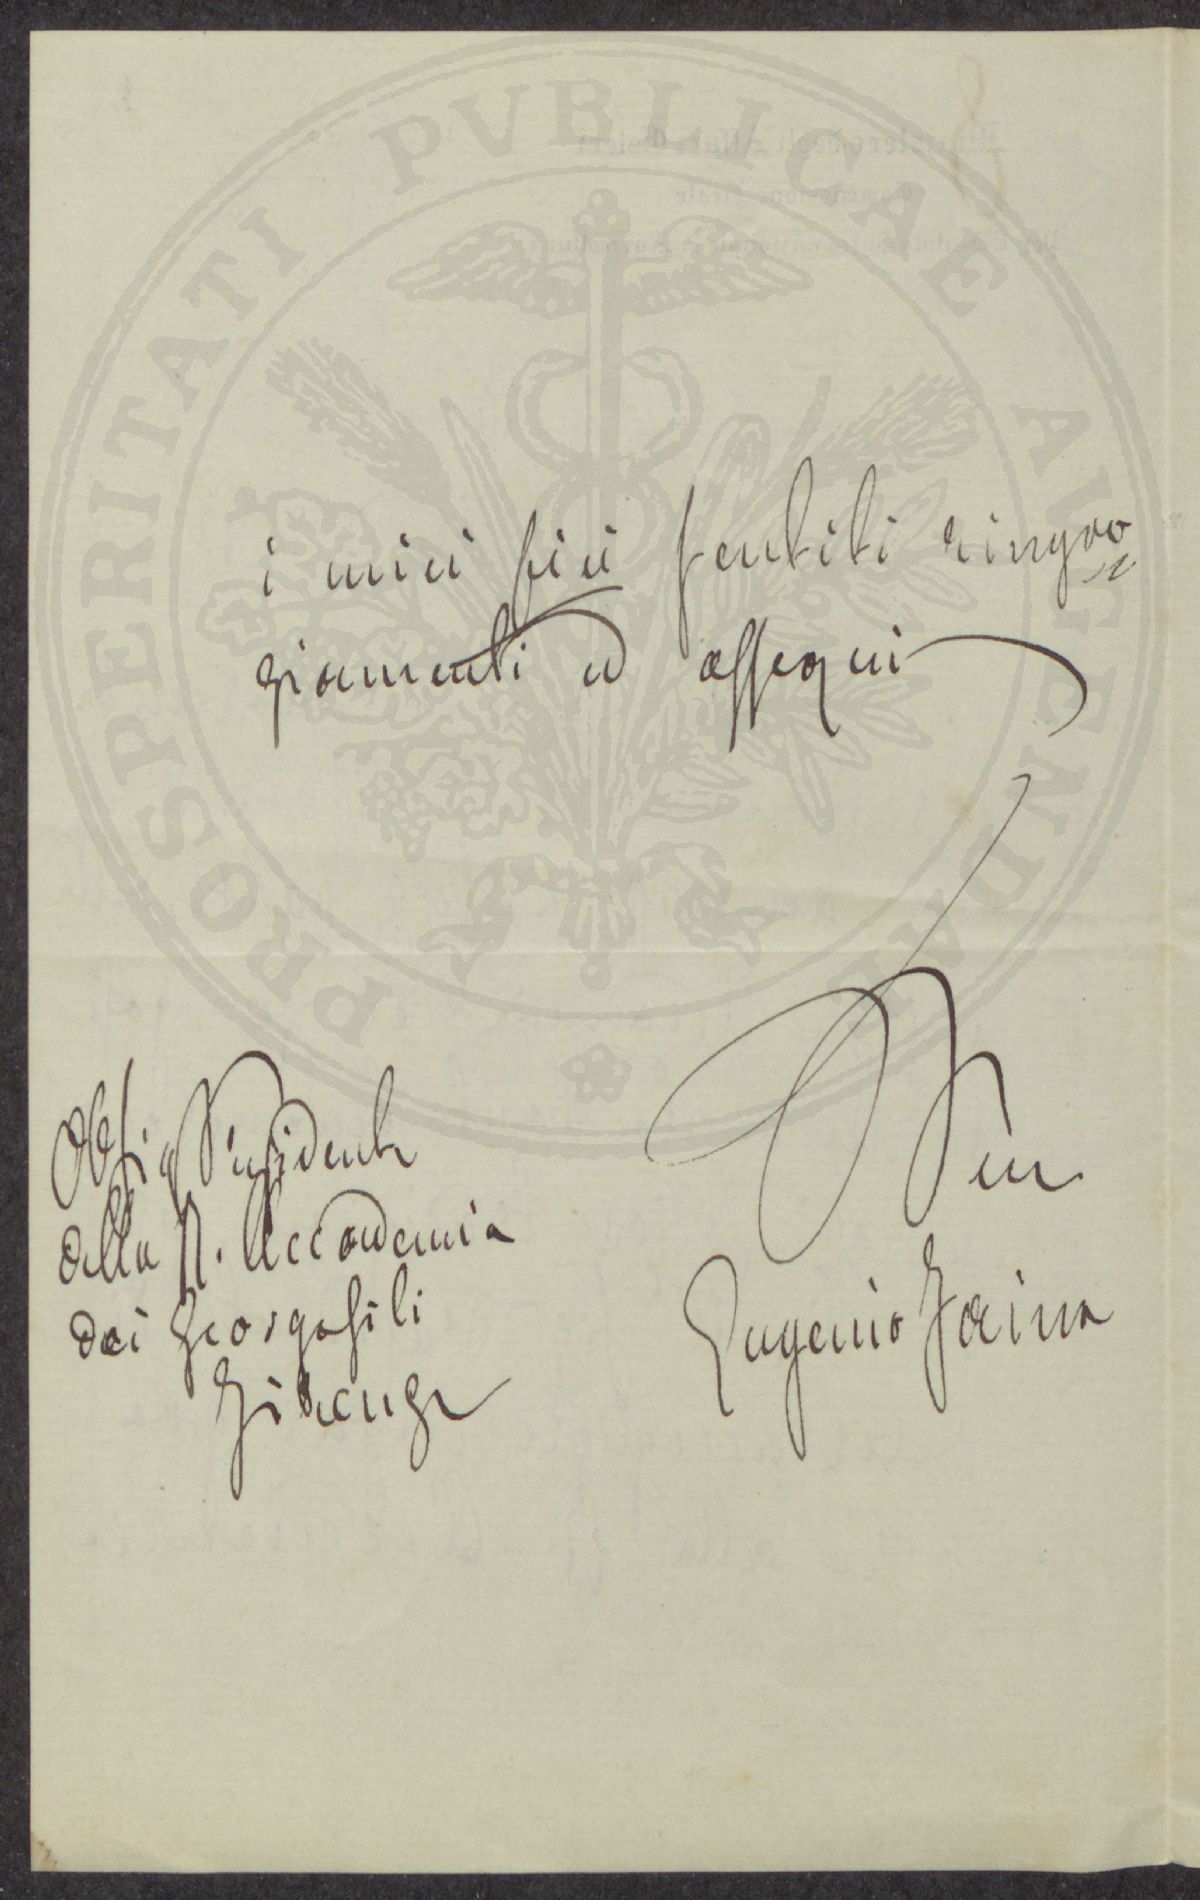 i miei più sentiti ringra
ziamenti ed ossequi
Dev
Eugenio Faina
Presidente
della R. Accademia
dei Georgofili
Firenze
PROSPERITATI PVBLICAE AVGENDAE